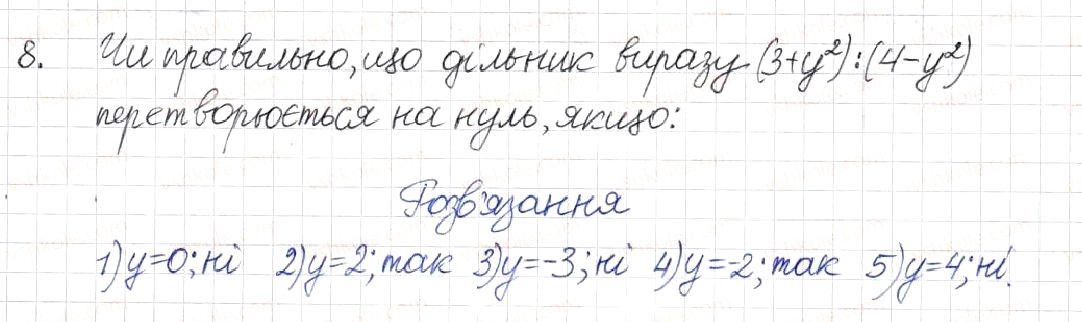 8. Чи правильно, що дільник виразу (3+y²):(4-y²)
перетворюється на нуль, якщо:
Розв'язання
1) y=0; ні 2) y=2; так 3) y=-3; ні 4) y=-2; так 5) y=4; ні.